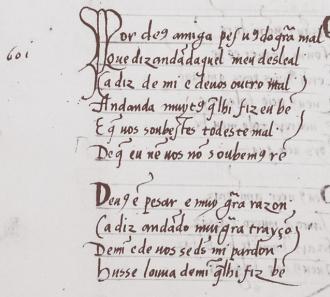 601
Por deꝯ amiga pes uꝯ do grã mal
Que diz andãd aquel meu desleal
Ca diz de mi e deuos outro mal
Andand a muytꝯ q̃ lhi fiz eu bẽ
E q̃ uos soubestes tod este mal
De q̃ eu nẽ uos nõ soubemꝯ rẽ
Deuꝯ ẽ pesar e muy grã razon
Ca diz andãdo mui grã trayçõ
Demi e de uos se dꝯ mi pardon
Husse louua demi q̃ lhi fiz bẽ